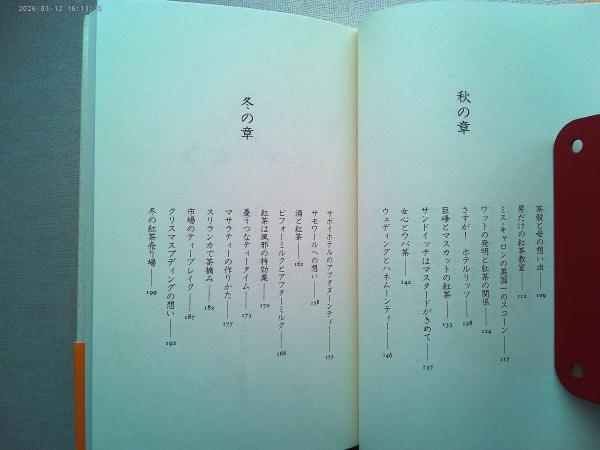 2026-03-12 16:13:29
秋の章
茶殻と母の想い出——109
男だけの紅茶教室——112
ミス・キャロンの英国一のスコーン——117
ワットの発明と紅茶の関係——124
さすが！ ホテルリッツ——128
巨峰とマスカットの紅茶——133
サンドイッチはマスタードがきめて——137
女心とウバ茶——142
ウェディングとハネムーンティー——146
冬の章
サボイホテルのアフタヌーンティ——153
サモワールへの想い——158
酒と紅茶——162
ビフォーミルクとアフターミルク——166
紅茶は風邪の特効薬——170
憂うつなティータイム——173
マサラティーの作りかた——177
スリランカで茶摘み——182
市場のティーブレイク——187
クリスマスプディングの想い——192
冬の紅茶売り場——199